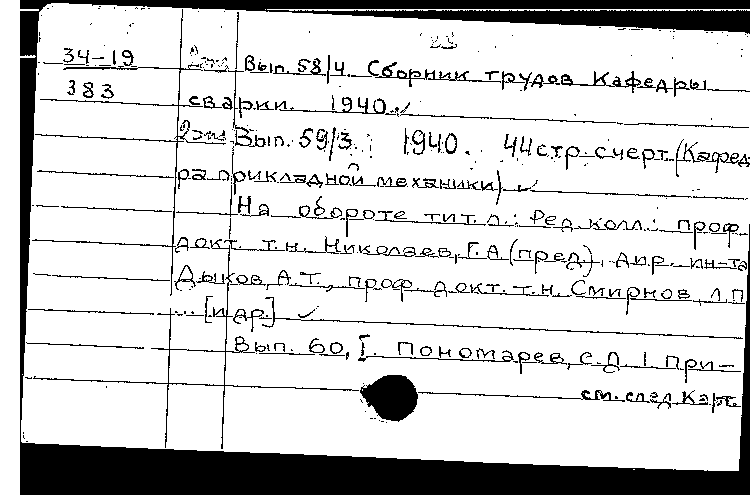 34-19
383
2 экз Вып. 58/4. Сборник трудов Кафедры
сварки. 1940.
2 экз Вып. 59/3. 1940. 44 стр. с черт. (Кафед
ра прикладной механики)
На обороте тит. л.: Ред. колл.: проф.
докт. т.н. Николаев, Г.А. (пред), дир. ин-та
Дыков, А.Т., проф. докт. т.н. Смирнов, Л.П
... [и др.]
Вып. 60, I. Пономарев, С.Д. 1. При-
см. след. карт.